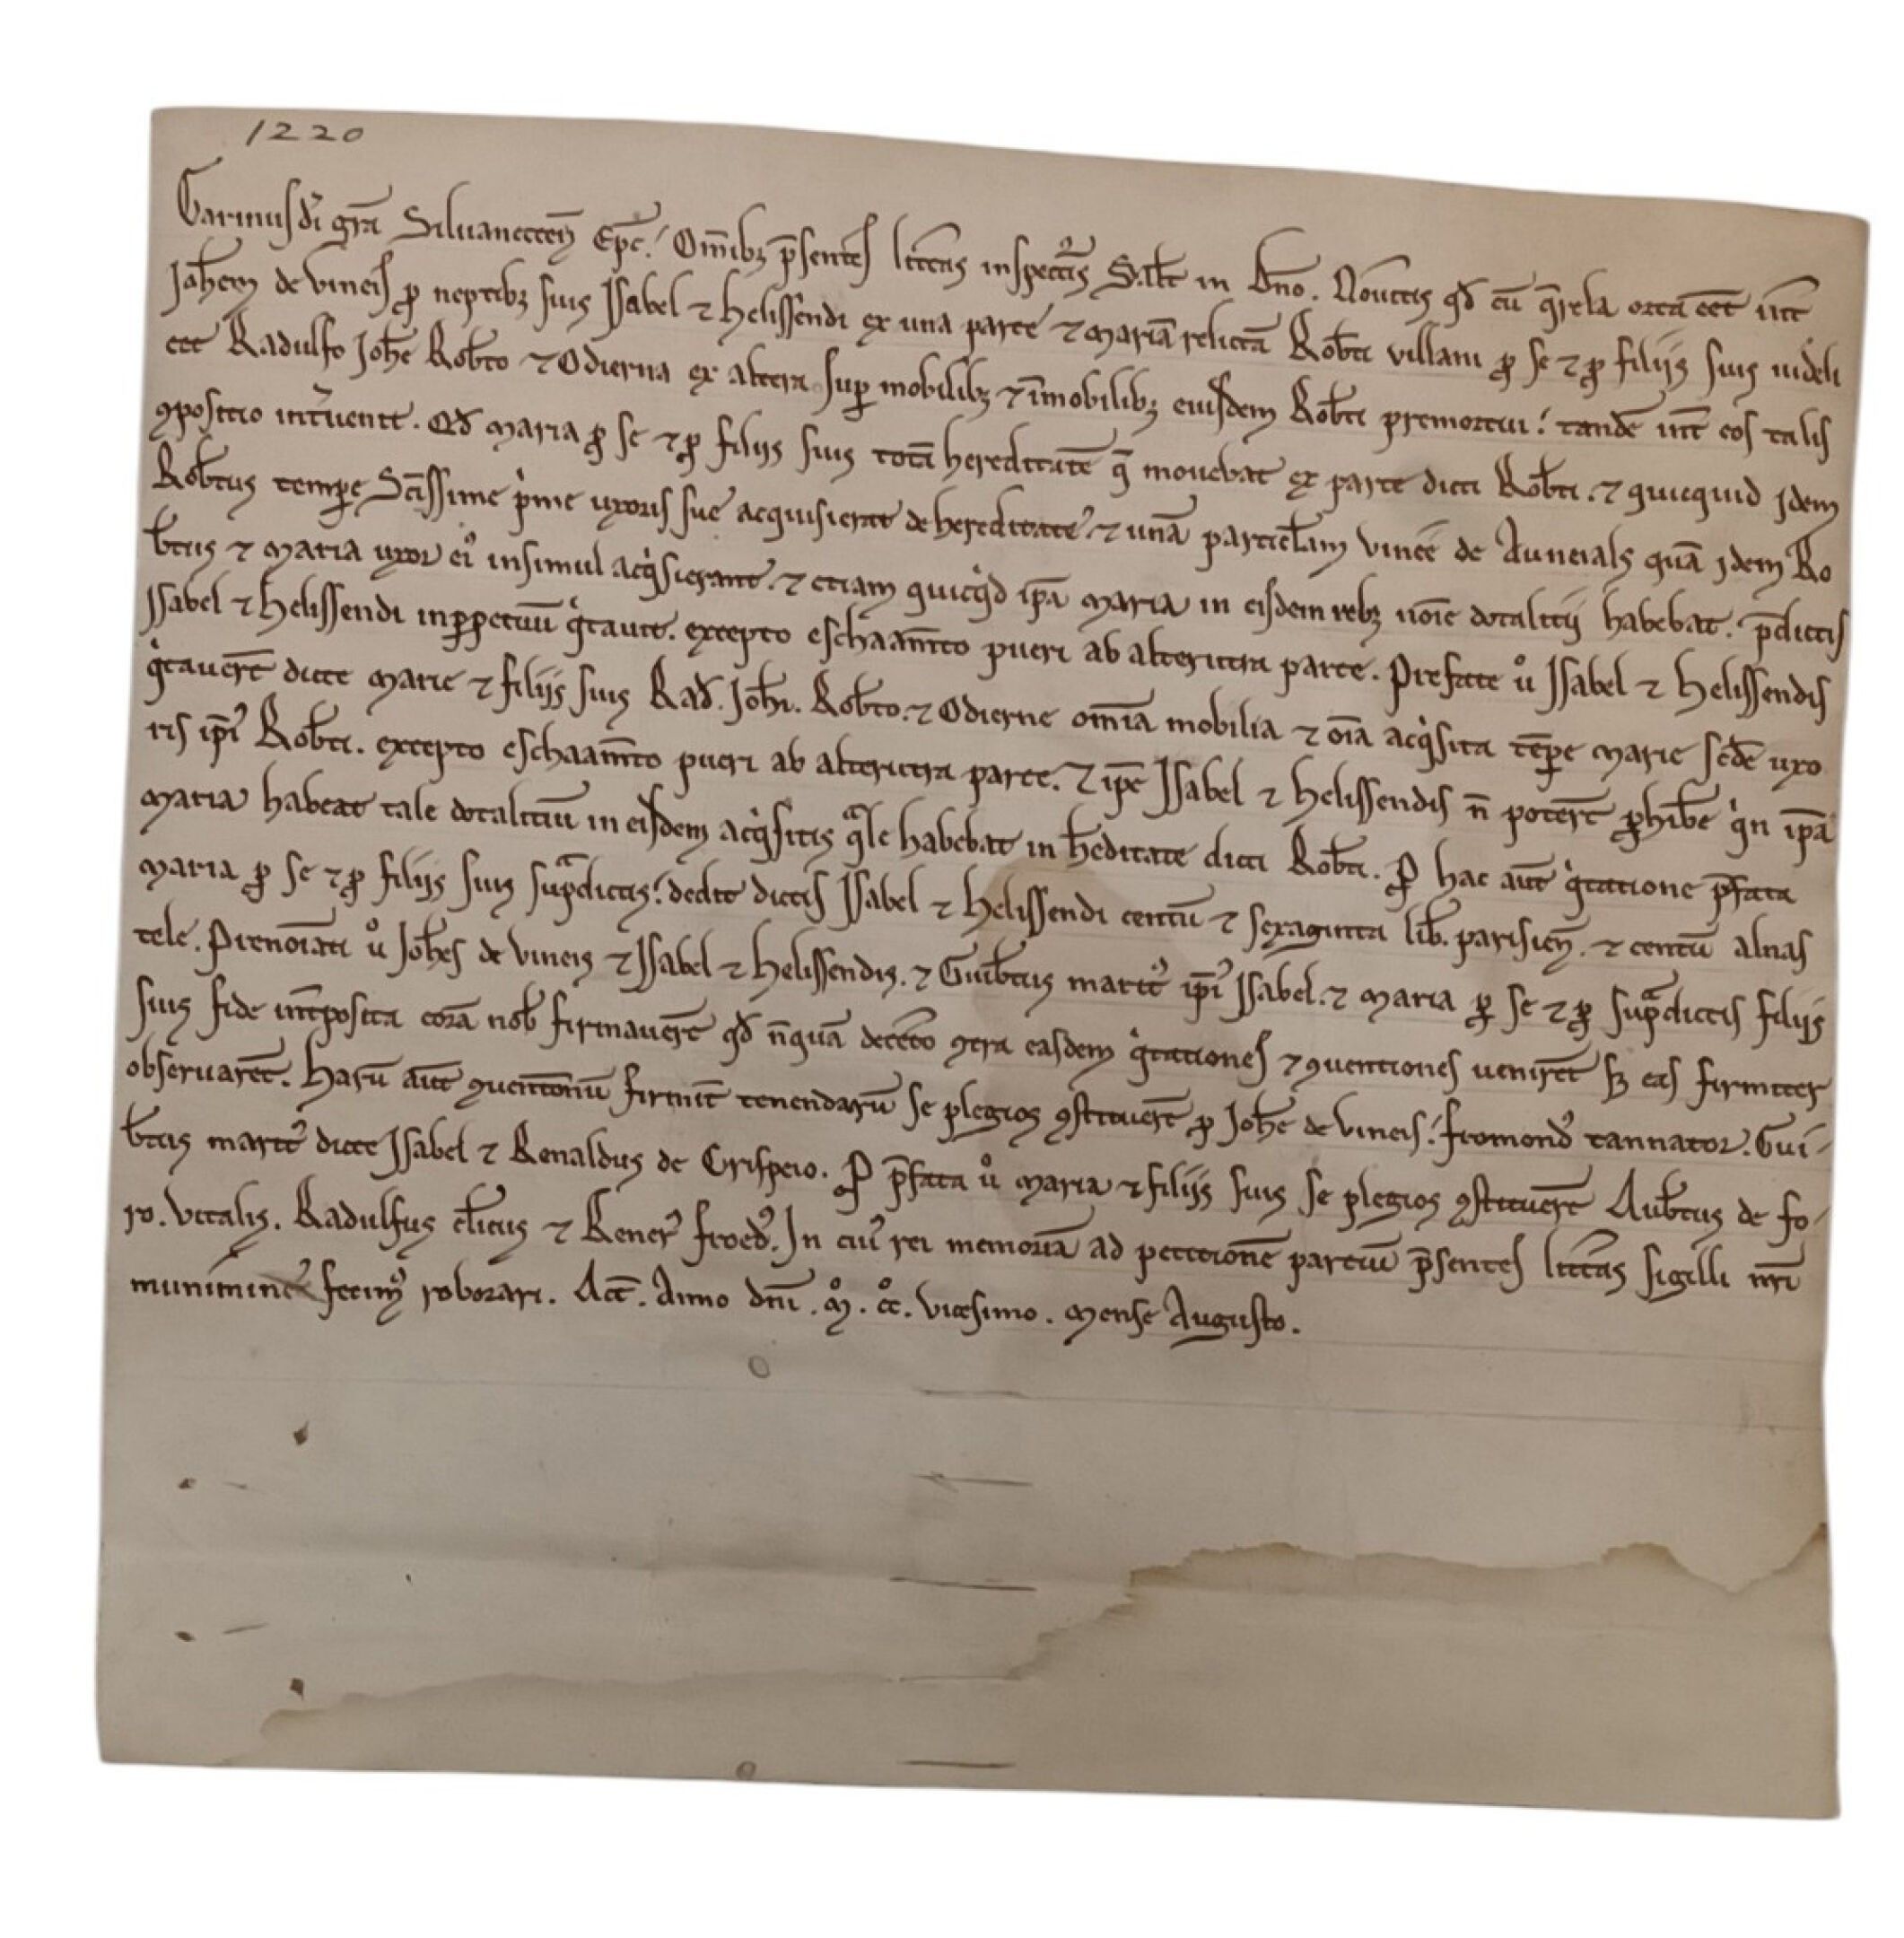 1220
Garinus di gr̄a Siluanecteñ Ep̄c. Om̄ibꝫ p̄sentes litt̄as inspectur̄ Sal̄t in Dn̄o. Nou̅itis qd̄ cū q̄rela orta eēt int̄
Joh̄em de vineis ꝓ neptibꝫ suis Isabel ⁊ helissendi ex una parte ⁊ mariā relictā Rob̄ti villani ꝓ se ⁊ ꝓ filijs suis uideli
cet Radulfo Joh̄e Rob̄to ⁊ Odierna ex altera suꝑ mobilibꝫ ⁊ īmobilibꝫ eiusdem Rob̄ti premortui. tandē int̄ eos talis
ꝯpositio int̾uenit. Qd̄ maria ꝓ se ⁊ ꝓ filijs suis totā hereditatē q̄ mouebat ex parte dicti Rob̄ti. ⁊ quicquid jdem
Rob̄tus temꝑe Sc̄issime p'me uxoris sue acquisierat de hereditate. ⁊ unā particl̄am vinee de Auneials quā jdem Ro
b̄tus ⁊ maria uxor ei⁹ insimul acq'sierant. ⁊ etiam quicq'd ip̄a maria in eisdem rebꝫ noīe dotalitij habebat. p̄dictis
Isabel ⁊ helissendi inꝑpetuū q'tauit. excepto eschaam̄to pueri ab alterutra parte. Prefate ů Isabel ⁊ helissendis
q'tauer̄t dicte marie ⁊ filijs suis Rad̄. Joh̄i. Rob̄to. ⁊ Odierne omīa mobilia ⁊ oīa acq'sita tēꝑe marie sēde uxo
ris ip̄i⁹ Rob̄ti. excepto eschaam̄to pueri ab alterutra parte. ⁊ ip̄e Isabel ⁊ helissendis n̄ poter̄t ꝓhib̄e q'n ip̄a
maria habeat tale dotalitiū in eisdem acq'sitis qᵃle habebat in h̄editate dicti Rob̄ti. ꝑ hac aūt q'tatione p̄fata
maria ꝓ se ⁊ ꝓ filijs suis supᵃdictis. dedit dictis Isabel ⁊ helissendi centū ⁊ sexaginta lib̄. parisieñ. ⁊ centū alnas
tele. Prenoīati ů Joh̄es de vineis ⁊ Isabel ⁊ helissendis. ⁊ Guib̄tus marit⁹ ip̄i⁹ Isabel. ⁊ maria ꝓ se ⁊ ꝓ supᵃdictis filijs
suis fide int̄posita corā nob̄ firmauer̄t qd̄ n̄quā decet̄o ꝯtra easdem q'tationes ⁊ ꝯuentiones uenir̄et sꝫ eas firmiter
obseruar̄et. Harū aūt ꝯuentionū firmit̄ tenendarū se plegios ꝯstituer̄t ꝓ Joh̄e de vineis. fromond⁹ tannator. Gui-
b̄tus marit⁹ dicte Isabel ⁊ Renaldus de Crispeio. ꝑ p̄fata ů maria ⁊ filijs suis se plegios ꝯstituer̄t Aub̄tus de fo-
ro. vitalis. Radulfus cl̄icus ⁊ Rener⁹ froed⁹. In cui⁹ rei memoriā ad petitionē partiū p̄sentes litt̄as sigilli nr̄i
munimine fecim⁹ roborari. Act̄. Anno dn̄i. m̊. cc̊. vicesimo. mense Augusto.